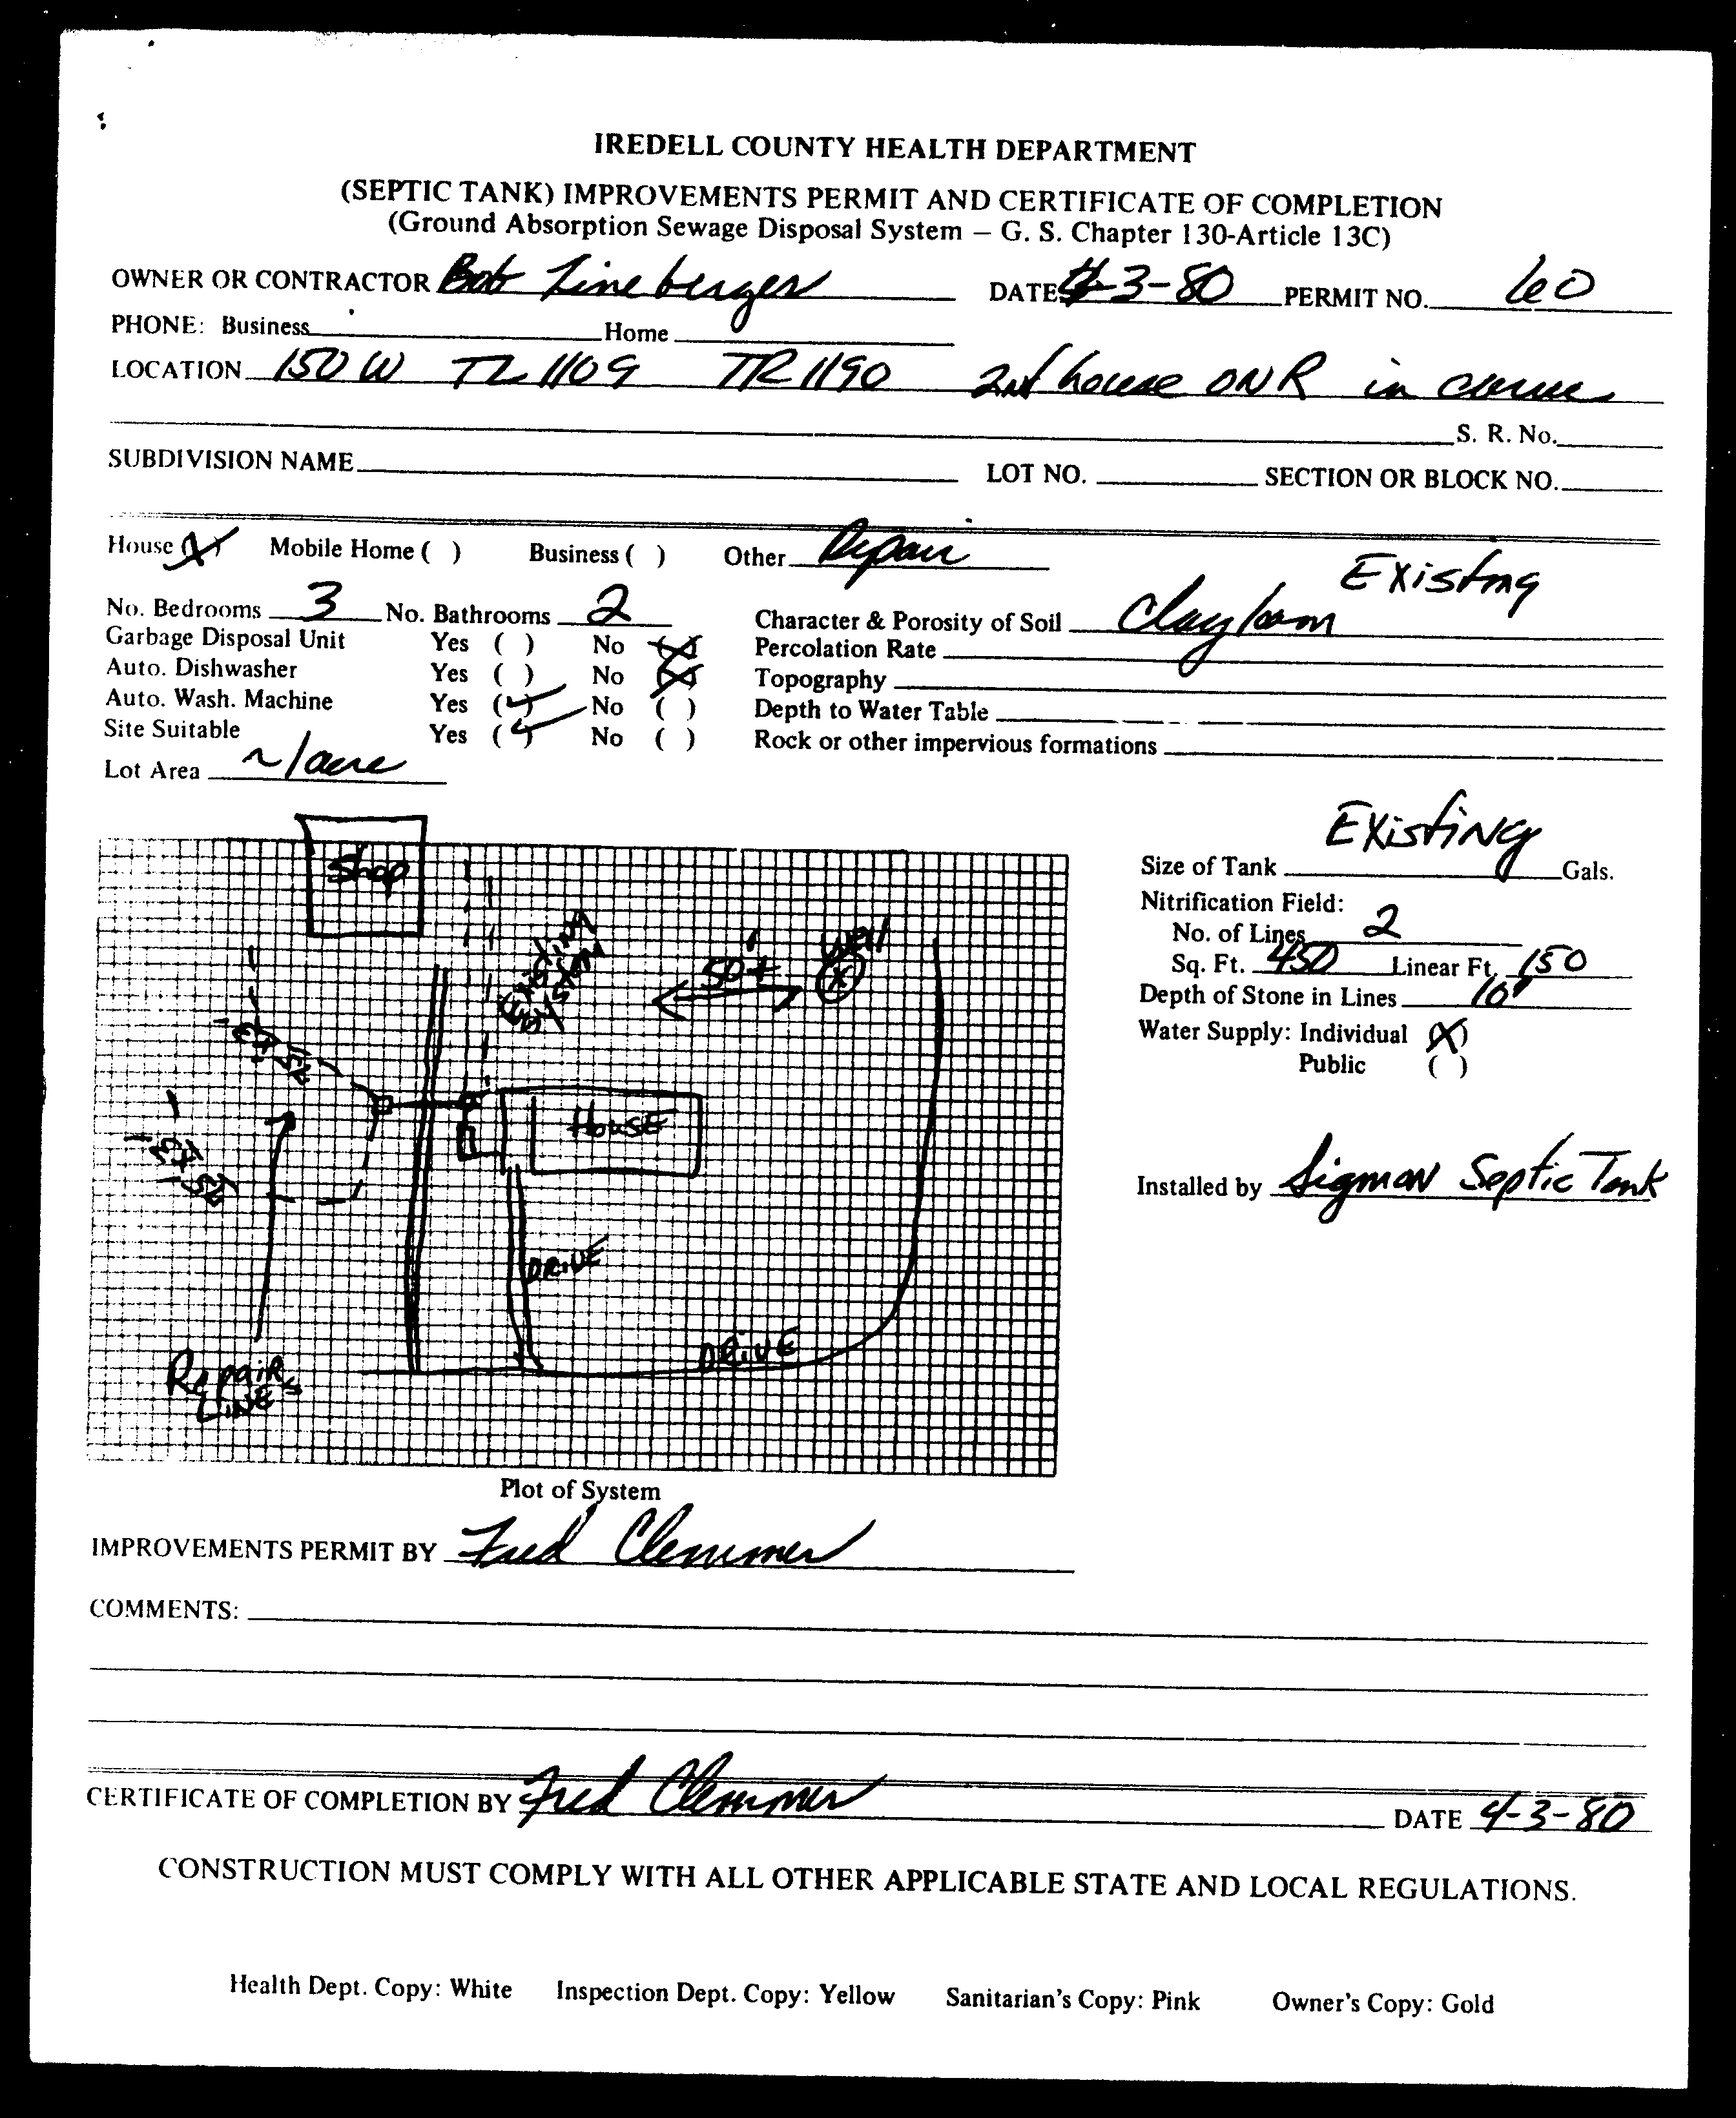 IREDELL COUNTY HEALTH DEPARTMENT
(SEPTIC TANK) IMPROVEMENTS PERMIT AND CERTIFICATE OF COMPLETION
(Ground Absorption Sewage Disposal System — G. S. Chapter 130-Article 13C)
OWNER OR CONTRACTOR Bob Lineberger DATE 4-3-80 PERMIT NO. 60
PHONE: Business Home
LOCATION 150 W TL 1109 TR 1190 2nd house ON R in curve
S. R. No.
SUBDIVISION NAME LOT NO. SECTION OR BLOCK NO.
House (X) Mobile Home ( ) Business ( ) Other Repair
Existing
No. Bedrooms 3 No. Bathrooms 2 Character & Porosity of Soil Clay loam
Garbage Disposal Unit Yes ( ) No (X) Percolation Rate
Auto. Dishwasher Yes ( ) No (X) Topography
Auto. Wash. Machine Yes (✓) No ( ) Depth to Water Table
Site Suitable Yes (✓) No ( ) Rock or other impervious formations
Lot Area ~1 acre
Existing
Size of Tank Gals.
Nitrification Field:
No. of Lines 2
Sq. Ft. 450 Linear Ft. 150
Depth of Stone in Lines 10"
Water Supply: Individual (X)
Public ( )
Installed by Sigmon Septic Tank
Shop
Existing
System
50'+
Well
X
3'x75'
HOUSE
3'x75'
DRIVE
DRIVE
Repair
LINES
Plot of System
IMPROVEMENTS PERMIT BY Fred Clemmer
COMMENTS:
CERTIFICATE OF COMPLETION BY Fred Clemmer DATE 4-3-80
CONSTRUCTION MUST COMPLY WITH ALL OTHER APPLICABLE STATE AND LOCAL REGULATIONS.
Health Dept. Copy: White Inspection Dept. Copy: Yellow Sanitarian's Copy: Pink Owner's Copy: Gold